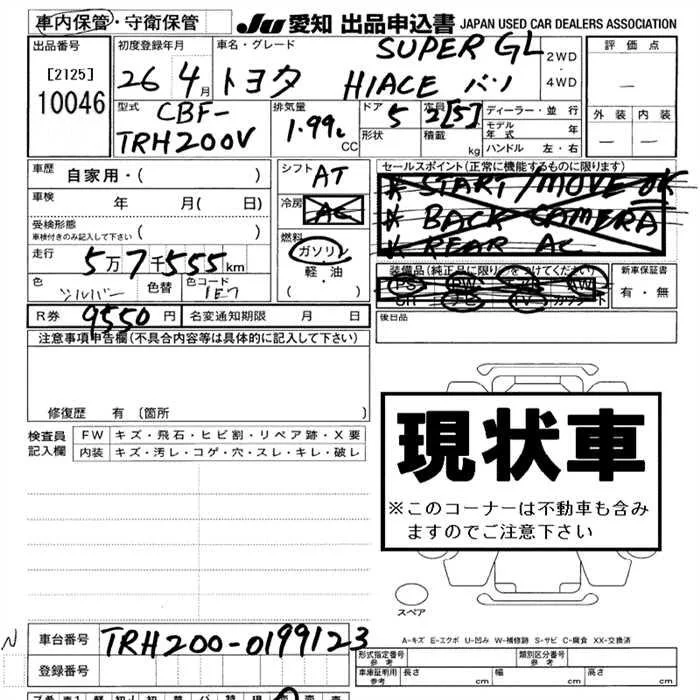 車内保管・守衛保管
JU 愛知 出品申込書 JAPAN USED CAR DEALERS ASSOCIATION
出品番号 初度登録年月 車名・グレード 評価点
[2125] 26 4月 トヨタ SUPER GL 2WD
10046 HIACE バン ・ 4WD
型式 排気量 ドア 定員 ディーラー・並行 外装 内装
CBF- 1.99L 5 2[5] モデル年式 年
TRH200V CC 形状 積載 kg ハンドル 左・右
車歴 自家用・( ) シフト AT セールスポイント(正常に機能するものに限ります)
車検 年 月( 日) 冷房 AC * START/MOVE OK
受検形態 * BACK CAMERA
車検付きのみ記入して下さい ( ) 燃料 ガソリン * REAR AC
走行 5万7千555km ・軽・油 装備品(純正品に限り○をつけてください) 新車保証書
色 シルバー 色替 色コード 1E7 ( ) PS PW AW 有・無
SR ナビ TV カワシート
R券 9550円 名変通知期限 月 日 後日品
注意事項申告欄(不具合内容等は具体的に記入して下さい)
修復歴 有 (箇所
現状車
※このコーナーは不動車も含み
ますのでご注意下さい
検査員 FW キズ・飛石・ヒビ割・リペア跡・X要
記入欄 内装 キズ・汚レ・コゲ・穴・スレ・キレ・破レ
スペア
N 車台番号 TRH200-0199123
A-キズ E-エクボ U-凹み W-補修跡 S-サビ C-腐食 XX-交換済
登録番号 形式指定番号 参考 類別区分番号 参考
車庫証明用 参考 長さ cm 幅 cm 高さ cm